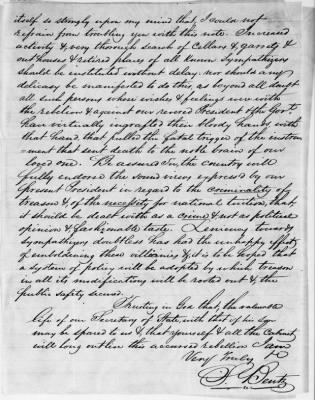 itself so strongly upon my mind that, I could not
refrain from troubling you with this note. Increased
activity & very thorough search of Cellars & garrets &
out houses & retired places of all known Sympathizers
should be instituted without delay: nor should any
delicacy be manifested to do this, as beyond all doubt
all such persons whose wishes & feelings were with
the rebellion & against our revered President & the Govt.
have virtually ingrafted their bloody hands with
that hand that pulled the fatal trigger of the instru-
-ment that sent death to the noble brain of our
loved one. Be assured Sir, the country will
fully endorse the sound views expressed by our
present President in regard to the criminality of
treason & of the necessity for national justice, that
it should be dealt with as a crime & not as political
opinion & fashionable taste. Leniency towards
Sympathizers doubtless has had the unhappy effect
of emboldening these villainies & it is to be hoped that
a system of policy will be adopted by which treason
in all its modifications will be rooted out & the
public safety secured.
Trusting in God that, the valuable
life of our Secretary of State, with that of his Son
may be spared to us & that yourself & all the Cabinet
will long outlive this accursed rebellion I am
Very truly
S. Bentz